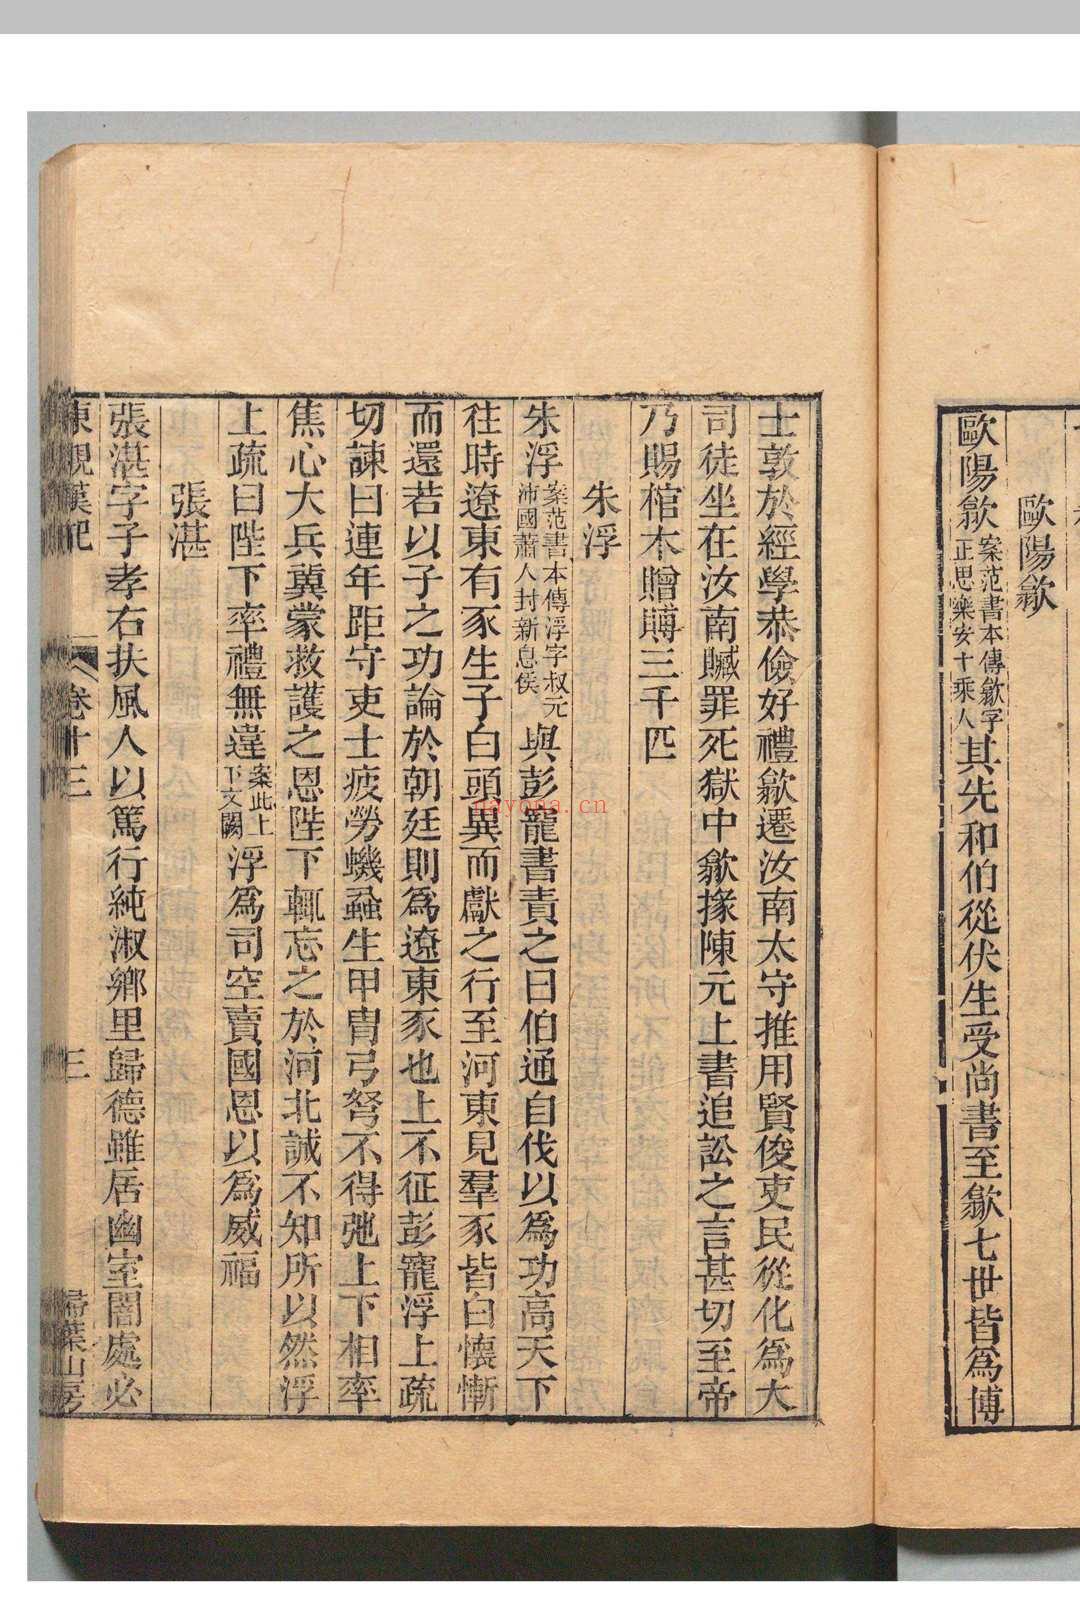 歐陽歙
歐陽歙案范書本傳歙字正思樂安十乘人其先和伯從伏生受尚書至歙七世皆爲博
士敦於經學恭儉好禮歙遷汝南太守推用賢俊吏民從化爲大
司徒坐在汝南贓罪死獄中歙掾陳元上書追訟之言甚切至帝
乃賜棺木贈賻三千匹
朱浮
朱浮案范書本傳浮字叔元沛國蕭人封新息侯與彭寵書責之曰伯通自伐以爲功高天下
往時遼東有豕生子白頭異而獻之行至河東見羣豕皆白懷慚
而還若以子之功論於朝廷則爲遼東豕也上不征彭寵浮上疏
切諫曰連年距守吏士疲勞蟣蝨生甲冑弓弩不得弛上下相率
焦心大兵冀蒙救護之恩陛下輒忘之於河北誠不知所以然浮
上疏曰陛下率禮無違案此上下文闕浮爲司空賣國恩以爲威福
張湛
張湛字子孝右扶風人以篤行純淑鄉里歸德雖居幽室闇處必
東觀漢記
卷十三
三
掃葉山房
nayona.cn